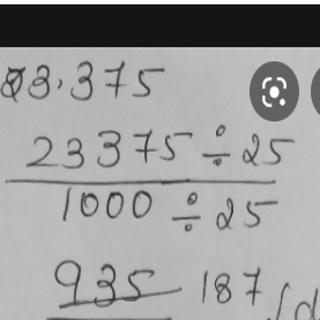 23.375
23375 ÷ 25
1000 ÷ 25
935 187